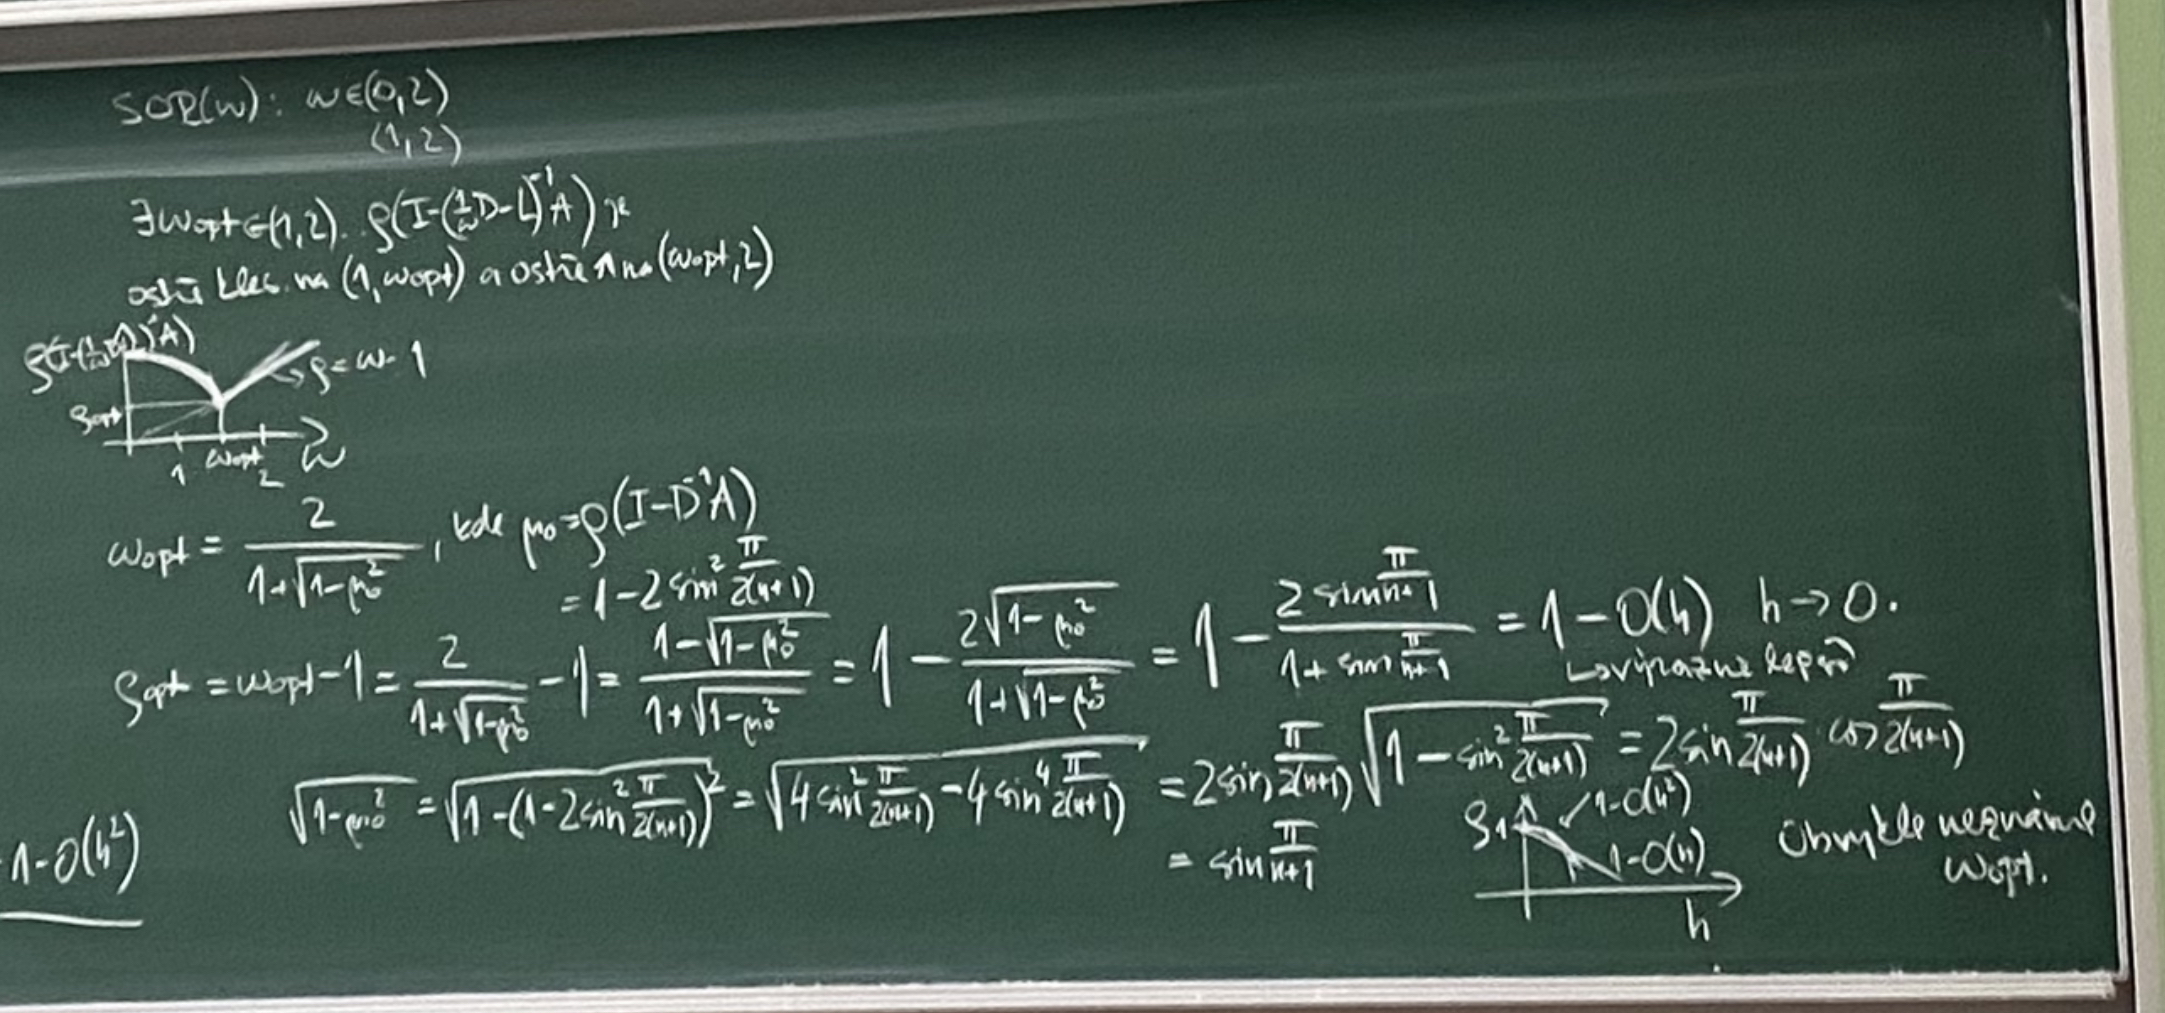 SOR(ω): ω∈(0,2)
(1,2)
∃ω_opt∈(1,2).. ρ(I-(1/ω D-L)^-1 A) je
ostře kles. na (1,ω_opt) a ostře ↑ na (ω_opt,2)
ρ=ω-1
ρ_opt
1 ω_opt 2 ω
ω_opt = 2/(1+√(1-μ₀²)), kde μ₀=ρ(I-D^-1 A)
= 1-2 sin² π/(2(n+1))
ρ_opt = ω_opt-1 = 2/(1+√(1-μ₀²)) -1 = (1-√(1-μ₀²))/(1+√(1-μ₀²)) = 1 - (2√(1-μ₀²))/(1+√(1-μ₀²)) = 1 - (2 sin π/(n+1))/(1+ sin π/(n+1)) = 1-O(h) h→0.
↳výrazně lepší
√(1-μ₀²) = √(1-(1-2sin² π/(2(n+1)))²) = √(4 sin² π/(2(n+1)) -4 sin⁴ π/(2(n+1))) = 2 sin π/(2(n+1)) √(1-sin² π/(2(n+1))) = 2 sin π/(2(n+1)) cos π/(2(n+1))
= sin π/(n+1)
1-O(h²)
ρ 1 1-O(h²)
1-O(h)
h
Obvykle neznáme
ω_opt.